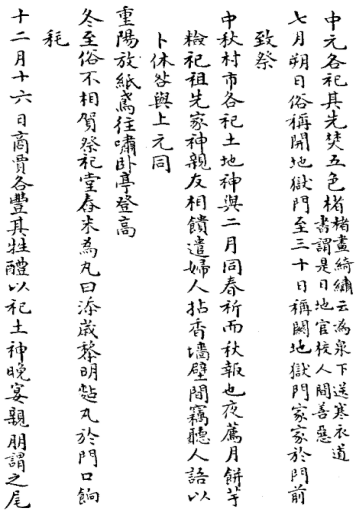 中元各祀其先焚五色楮楮畫綺繡云為泉下送寒衣道
書謂是日地官校人間善惡
七月朔日俗稱開地獄門至三十日稱關地獄門家家於門前
致祭
中秋村市各祀土地神與二月同春祈而秋報也夜薦月餅芋
檢祀祖先家神親友相饋遺婦人拈香墻壁間竊聽人語以
卜休咎與上元同
重陽放紙鳶往嘯卧亭登高
冬至俗不相賀祭祠堂舂米為丸曰添歲黎明黏丸於門口餉
耗
十二月十六日商賈各豐其牲醴以祀土神晚宴親朋謂之尾